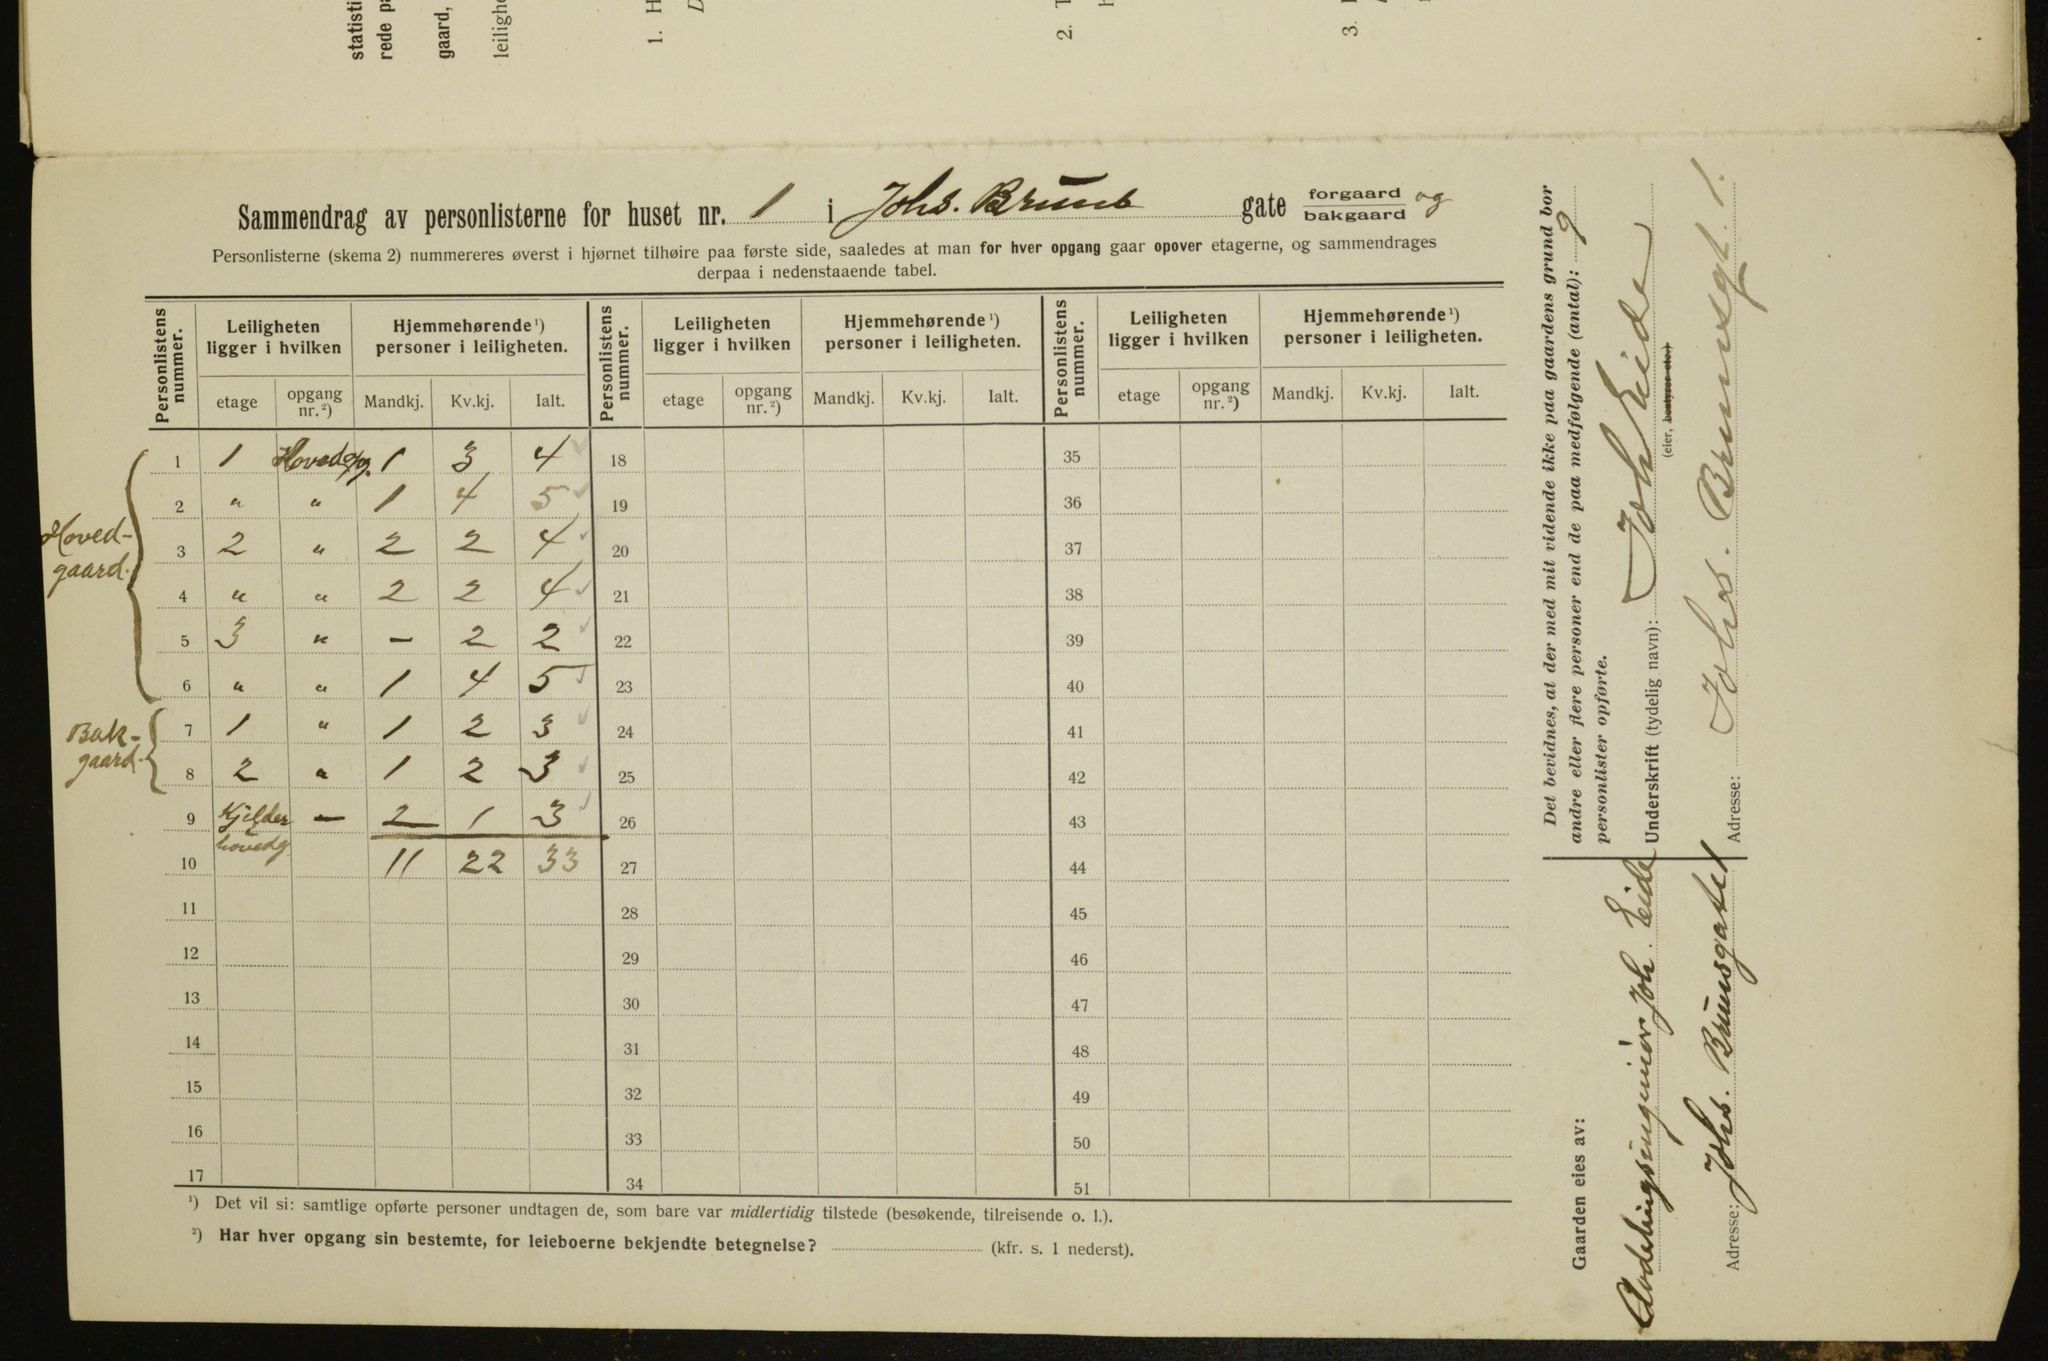 statisti
rede pa
gaard,
leilighe
1. H
D
2. T
h
3.
Sammendrag av personlisterne for huset nr. 1 i Johs. Bruns gate forgaard og
bakgaard
Personlisterne (skema 2) nummereres øverst i hjørnet tilhøire paa første side, saaledes at man for hver opgang gaar opover etagerne, og sammendrages
derpaa i nedenstaaende tabel.
Personlistens nummer. Leiligheten ligger i hvilken Hjemmehørende ¹) personer i leiligheten. Personlistens nummer. Leiligheten ligger i hvilken Hjemmehørende ¹) personer i leiligheten. Personlistens nummer. Leiligheten ligger i hvilken Hjemmehørende ¹) personer i leiligheten.
etage opgang nr. ²) Mandkj. Kv.kj. Ialt. etage opgang nr. ²) Mandkj. Kv.kj. Ialt. etage opgang nr. ²) Mandkj. Kv.kj. Ialt.
Hoved-
gaard.
1 1 Hovedopg. 1 3 4 18 35
2 " " 1 4 5 19 36
3 2 " 2 2 4 20 37
4 " " 2 2 4 21 38
5 3 " - 2 2 22 39
6 " " 1 4 5 23 40
Bak-
gaard.
7 1 " 1 2 3 24 41
8 2 " 1 2 3 25 42
9 Kjelder - 2 1 3 26 43
hovedg
10 11 22 33 27 44
11 28 45
12 29 46
13 30 47
14 31 48
15 32 49
16 33 50
17 34 51
¹) Det vil si: samtlige opførte personer undtagen de, som bare var midlertidig tilstede (besøkende, tilreisende o. l.).
²) Har hver opgang sin bestemte, for leieboerne bekjendte betegnelse? (kfr. s. 1 nederst).
Det bevidnes, at der med mit vidende ikke paa gaardens grund bor
andre eller flere personer end de paa medfølgende (antal): 9
personlister opførte.
Underskrift (tydelig navn): Joh Eide
(eier, bestyrer etc.)
Adresse: Johs. Brunsgt. 1.
Gaarden eies av:
Avdelingsingeniør Joh. Eide
Adresse: Johs. Brunsgate 1